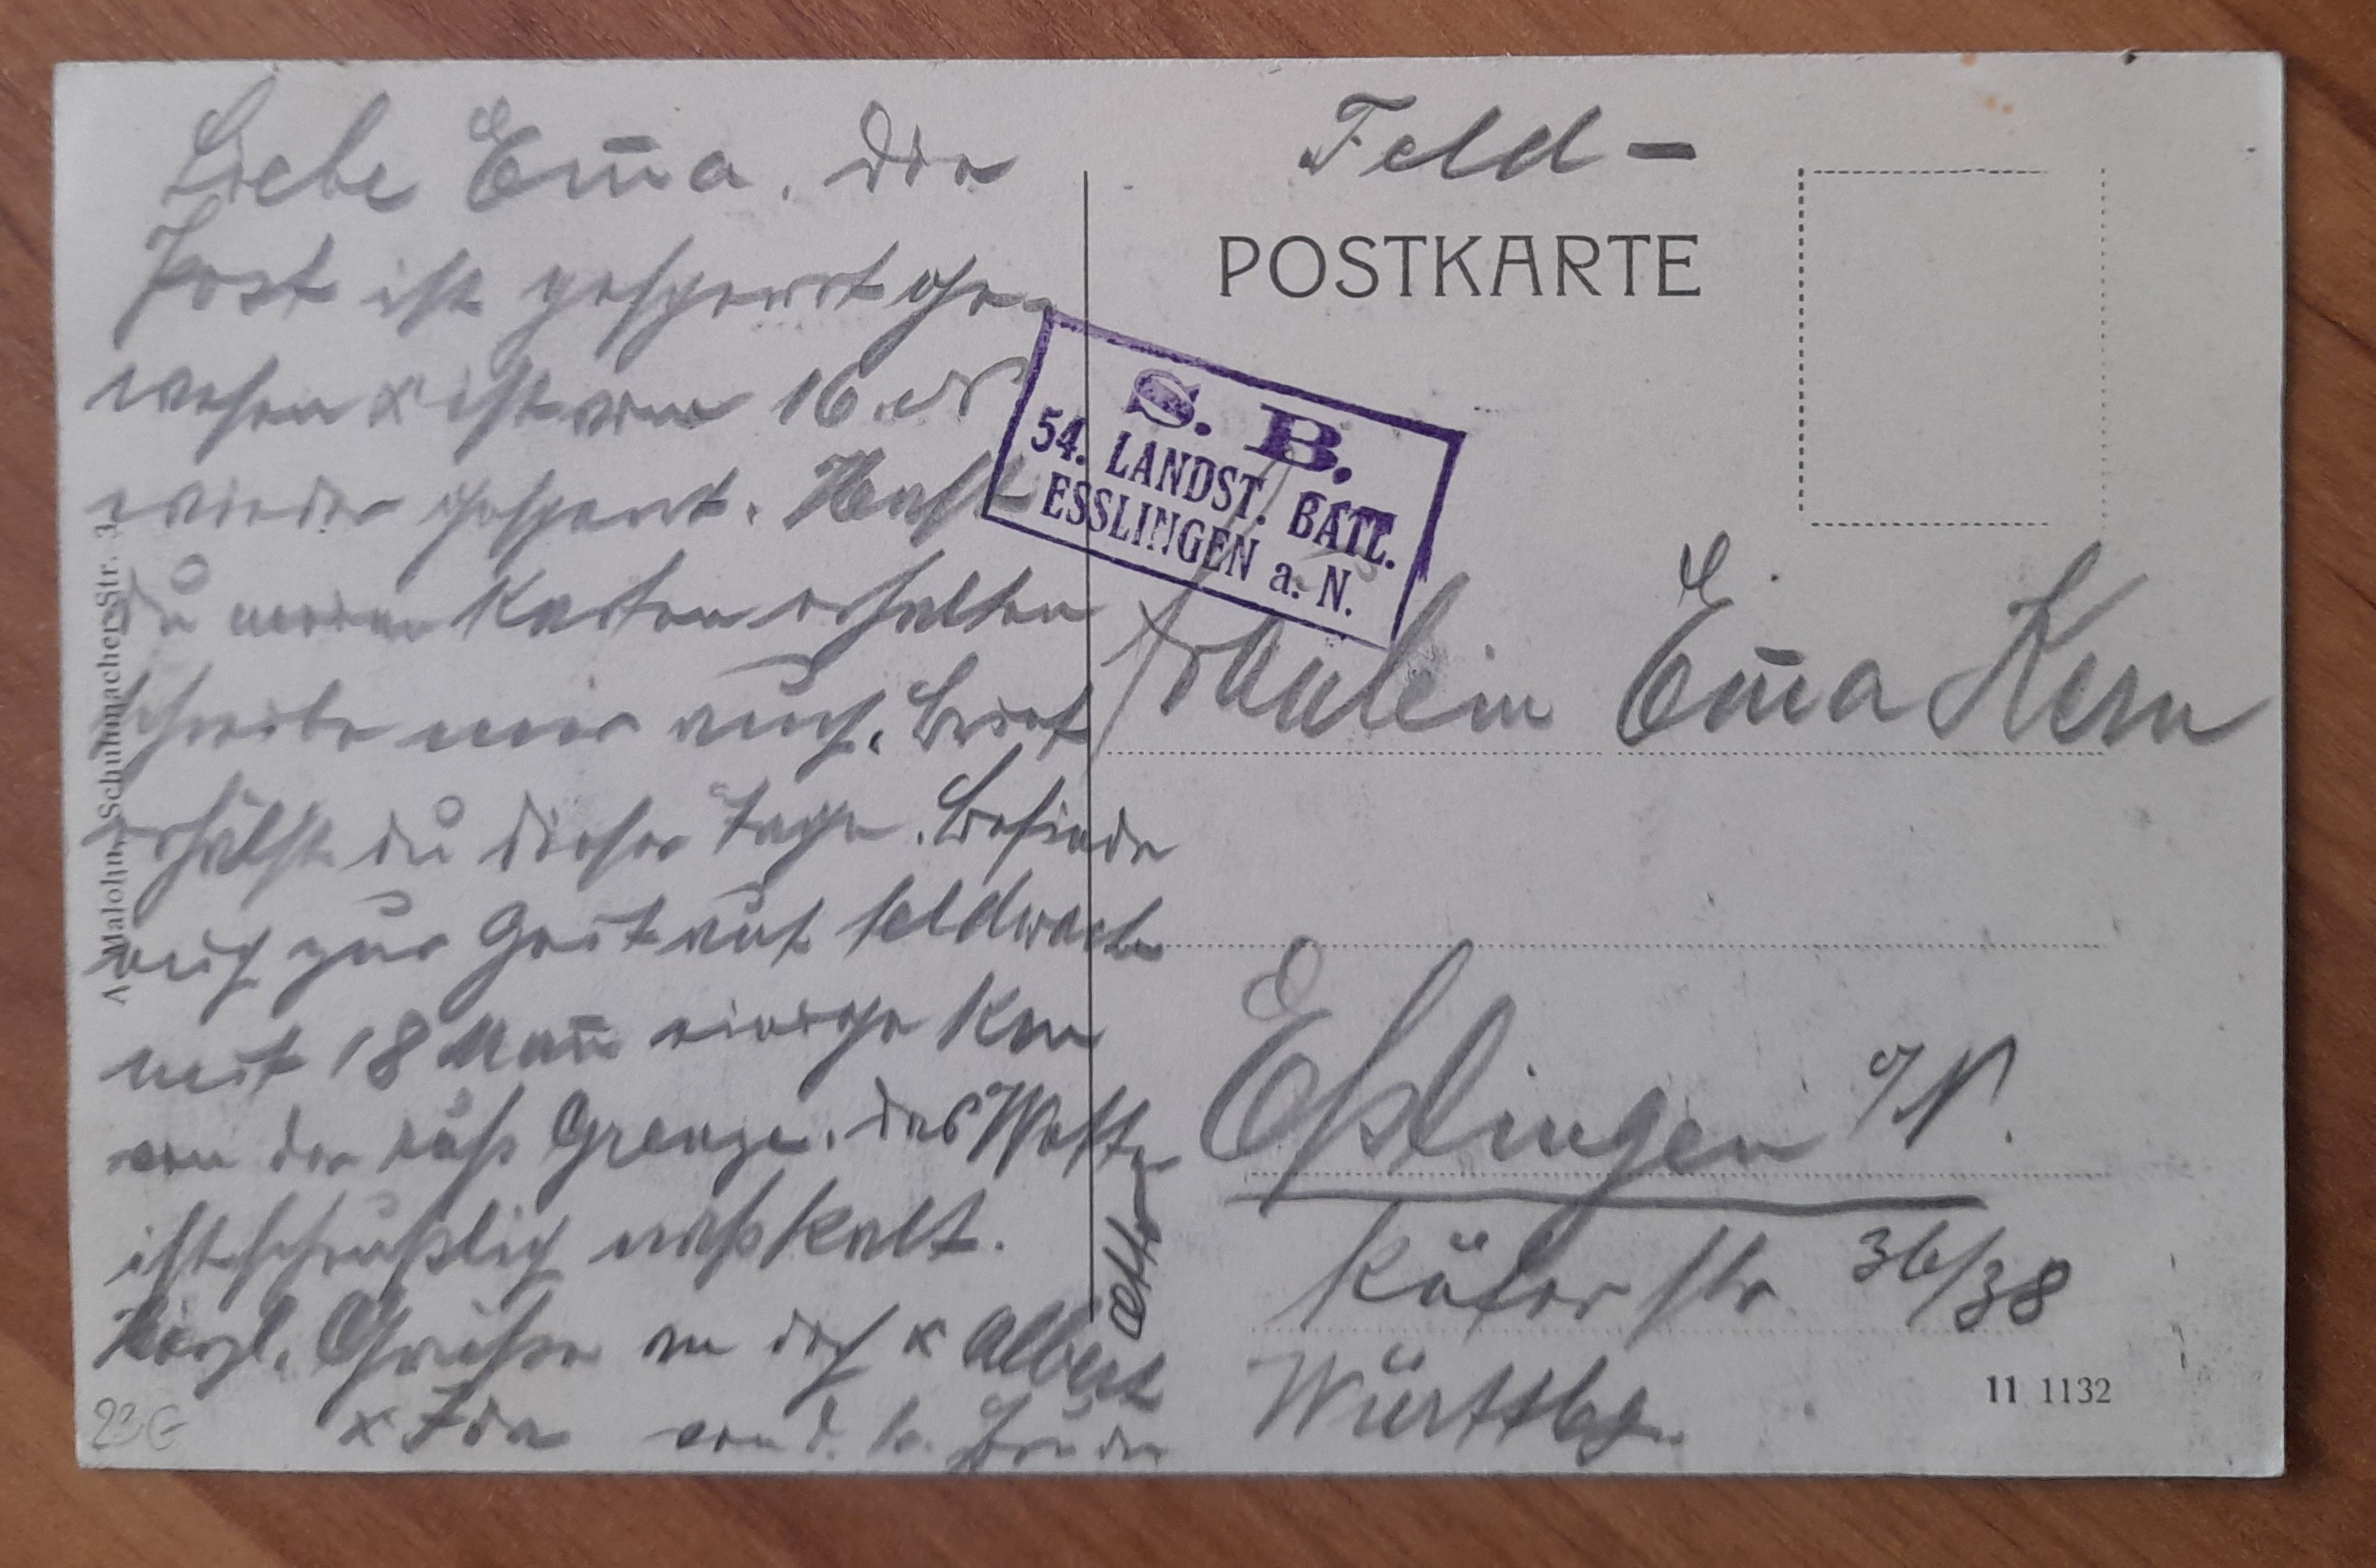 Liebe Em̄a. Die
Post ist gesperrt ge-
wesen & ist vom 16. ds
wieder gesperrt. Hast
du meine Karten erhalten
schreibe mir auch. Brief
erhälst du dieser Tage. Befinde
mich zur Zeit auf Feldwache
mit 18 Man̄ einige Km
von der russ Grenze. Das Wetter
ist scheußlich naßkalt.
Herzl. Grüße an dich & Albert
& Ida von d. b. Bruder
Otto
23G
A. Malohn, Schuhmacher Str. 3.
Feld -
POSTKARTE
S. B.
54. LANDST. BATL.
ESSLINGEN a. N.
Fräulein Em̄a Kern
Eßlingen a/N.
Küferstr 36/38
Württbg.
11 1132